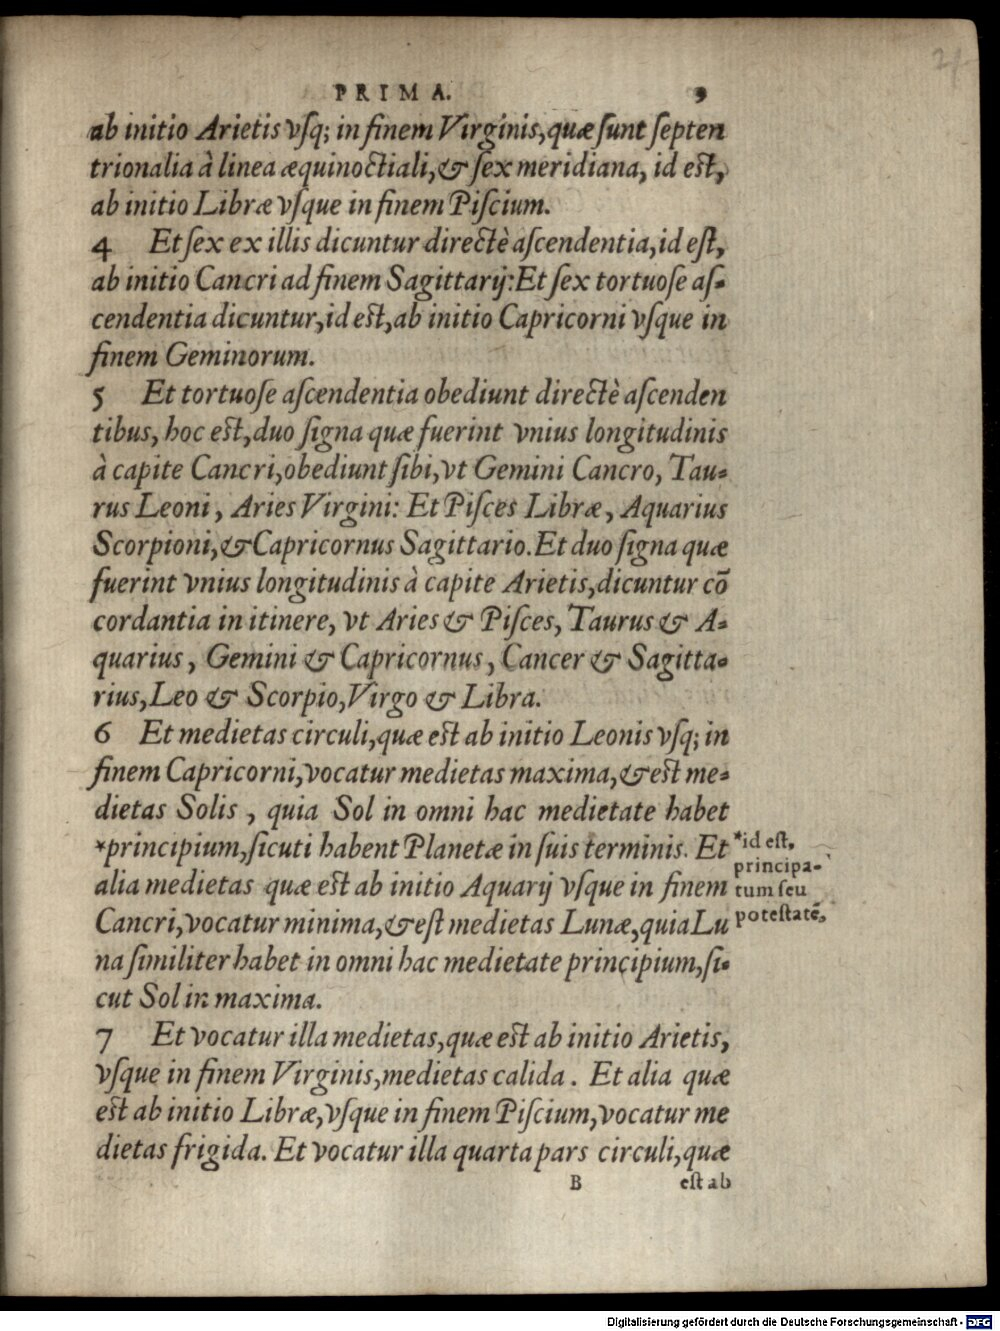 21
PRIMA. 9
ab initio Arietis vſq; in finem Virginis, quæ ſunt ſepten
trionalia à linea æquinoctiali, & ſex meridiana, id est,
ab initio Libræ vſque in finem Piſcium.
4 Et ſex ex illis dicuntur directè aſcendentia, id eſt,
ab initio Cancri ad finem Sagittarij: Et ſex tortuoſe aſ-
cendentia dicuntur, id est, ab initio Capricorni vſque in
finem Geminorum.
5 Et tortuoſe aſcendentia obediunt directè aſcenden
tibus, hoc est, duo ſigna quæ fuerint vnius longitudinis
à capite Cancri, obediunt ſibi, vt Gemini Cancro, Tau-
rus Leoni, Aries Virgini: Et Piſces Libræ, Aquarius
Scorpioni, & Capricornus Sagittario. Et duo ſigna quæ
fuerint vnius longitudinis à capite Arietis, dicuntur cō
cordantia in itinere, vt Aries & Piſces, Taurus & A-
quarius, Gemini & Capricornus, Cancer & Sagitta-
rius, Leo & Scorpio, Virgo & Libra.
6 Et medietas circuli, quæ est ab initio Leonis vſq; in
finem Capricorni, vocatur medietas maxima, & est me-
dietas Solis, quia Sol in omni hac medietate habet
*principium, ſicuti habent Planetæ in ſuis terminis. Et
alia medietas quæ est ab initio Aquarij vſque in finem
Cancri, vocatur minima, & eſt medietas Lunæ, quia Lu
na ſimiliter habet in omni hac medietate principium, ſi-
cut Sol in maxima.
*id eſt,
principa-
tum ſeu
potestatē,
7 Et vocatur illa medietas, quæ est ab initio Arietis,
vſque in finem Virginis, medietas calida. Et alia quæ
est ab initio Libræ, vſque in finem Piſcium, vocatur me
dietas frigida. Et vocatur illa quarta pars circuli, quæ
B est ab
Digitalisierung gefördert durch die Deutsche Forschungsgemeinschaft - DFG